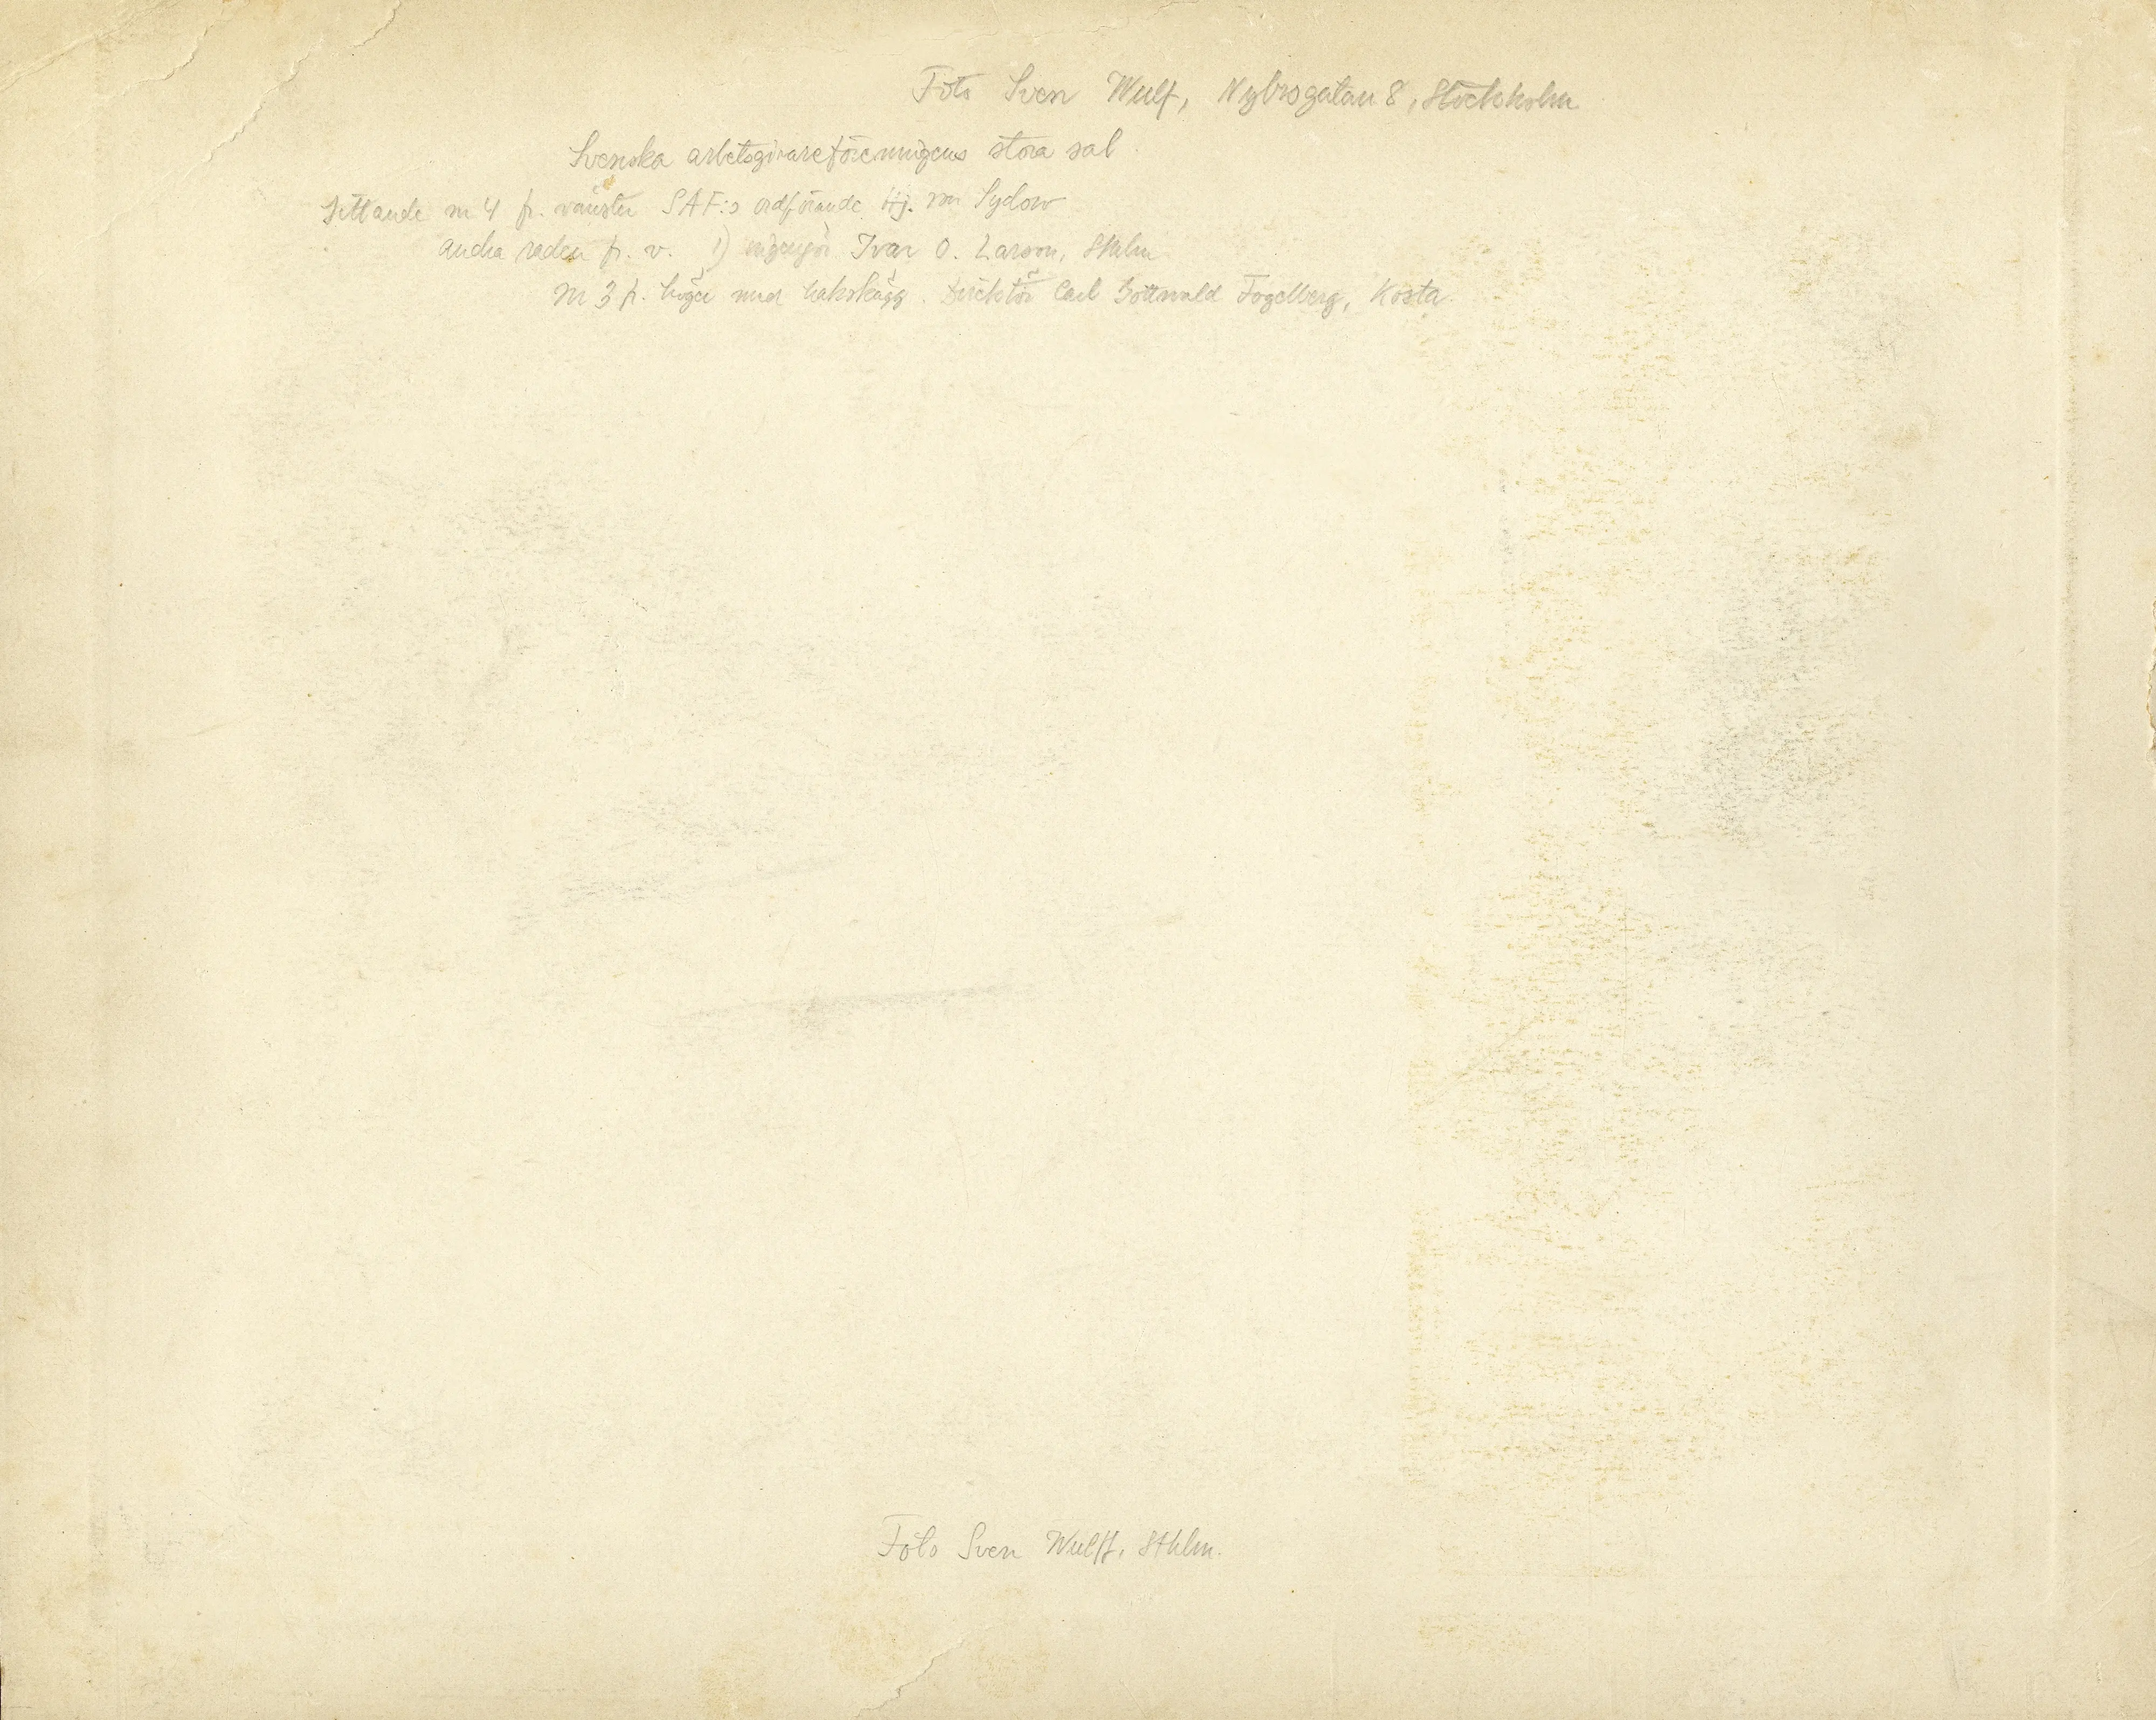 Foto Sven Wulf, Nybrogatan 8, Stockholm
Svenska arbetsgivareföreningens stora sal
Sittande nr 4 fr. vänster SAF:s ordförande Hj. von Sydow
andra raden fr. v. 1) ingenjör Ivar O. Larson, Sthlm
nr 3 fr. höger med hakskägg. Direktör Carl Gottwald Fogelberg, Kosta.
Foto Sven Wulff, Sthlm.